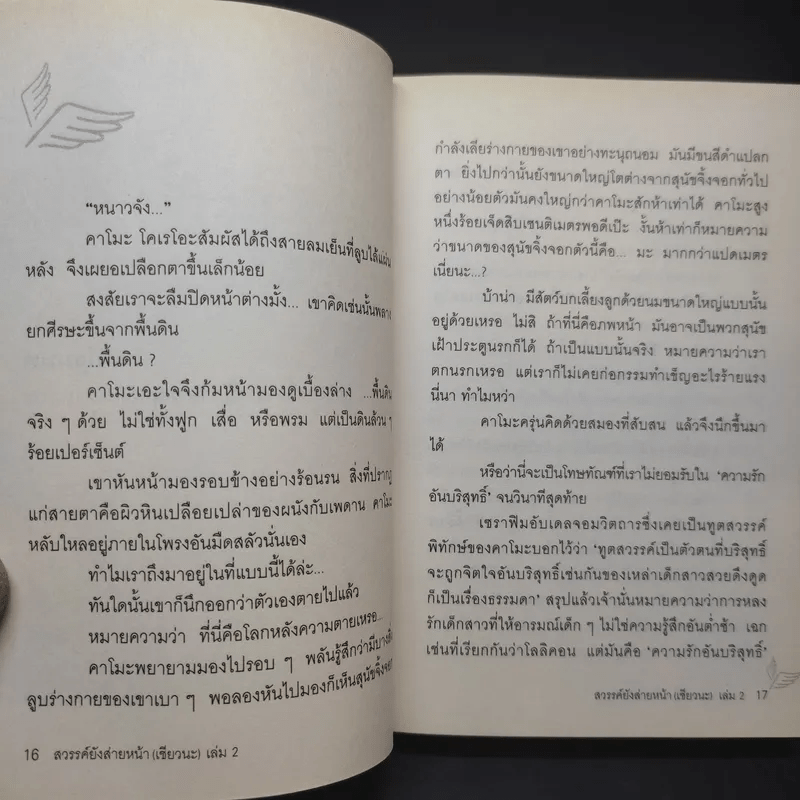 “หนาวจัง...”
คาโมะ โคเรโอะสัมผัสได้ถึงสายลมเย็นที่ลูบไล้แผ่น
หลัง จึงเผยอเปลือกตาขึ้นเล็กน้อย
สงสัยเราจะลืมปิดหน้าต่างมั้ง... เขาคิดเช่นนั้นพลาง
ยกศีรษะขึ้นจากพื้นดิน
...พื้นดิน ?
คาโมะเอะใจจึงก้มหน้ามองดูเบื้องล่าง ...พื้นดิน
จริง ๆ ด้วย ไม่ใช่ทั้งฟูก เสื่อ หรือพรม แต่เป็นดินล้วน ๆ
ร้อยเปอร์เซ็นต์
เขาหันหน้ามองรอบข้างอย่างร้อนรน สิ่งที่ปรากฏ
แก่สายตาคือผิวหินเปลือยเปล่าของผนังกับเพดาน คาโมะ
หลับใหลอยู่ภายในโพรงอันมืดสลัวนั่นเอง
ทำไมเราถึงมาอยู่ในที่แบบนี้ได้ล่ะ...
ทันใดนั้นเขาก็นึกออกว่าตัวเองตายไปแล้ว
หมายความว่า ที่นี่คือโลกหลังความตายเหรอ...
คาโมะพยายามมองไปรอบ ๆ พลันรู้สึกว่ามีบางสิ่ง
ลูบร่างกายของเขาเบา ๆ พอลองหันไปมองก็เห็นสุนัขจิ้งจอก
16 สวรรค์ยังส่ายหน้า (เชียวนะ) เล่ม 2
กำลังเลียร่างกายของเขาอย่างทะนุถนอม มันมีขนสีดำแปลก
ตา ยิ่งไปกว่านั้นยังขนาดใหญ่โตต่างจากสุนัขจิ้งจอกทั่วไป
อย่างน้อยตัวมันคงใหญ่กว่าคาโมะสักห้าเท่าได้ คาโมะสูง
หนึ่งร้อยเจ็ดสิบเซนติเมตรพอดีเป๊ะ งั้นห้าเท่าก็หมายความ
ว่าขนาดของสุนัขจิ้งจอกตัวนี้คือ... มะ มากกว่าแปดเมตร
เนี่ยนะ...?
บ้าน่า มีสัตว์บกเลี้ยงลูกด้วยนมขนาดใหญ่แบบนั้น
อยู่ด้วยเหรอ ไม่สิ ถ้าที่นี่คือภพหน้า มันอาจเป็นพวกสุนัข
เฝ้าประตูนรกก็ได้ ถ้าเป็นแบบนั้นจริง หมายความว่าเรา
ตกนรกเหรอ แต่เราก็ไม่เคยก่อกรรมทำเข็ญอะไรร้ายแรง
นี่นา ทำไมหว่า
คาโมะครุ่นคิดด้วยสมองที่สับสน แล้วจึงนึกขึ้นมา
ได้
หรือว่านี่จะเป็นโทษทัณฑ์ที่เราไม่ยอมรับใน ‘ความรัก
อันบริสุทธิ์’ จนวินาทีสุดท้าย
เซราฟิมอับเดลจอมวิตถารซึ่งเคยเป็นทูตสวรรค์
พิทักษ์ของคาโมะบอกไว้ว่า ‘ทูตสวรรค์เป็นตัวตนที่บริสุทธิ์
จะถูกจิตใจอันบริสุทธิ์เช่นกันของเหล่าเด็กสาวสวยดึงดูด
ก็เป็นเรื่องธรรมดา’ สรุปแล้วเจ้านั่นหมายความว่าการหลง
รักเด็กสาวที่ให้อารมณ์เด็ก ๆ ไม่ใช่ความรู้สึกอันต่ำช้า เฉก
เช่นที่เรียกกันว่าโลลิคอน แต่มันคือ ‘ความรักอันบริสุทธิ์’
สวรรค์ยังส่ายหน้า (เชียวนะ) เล่ม 2 17